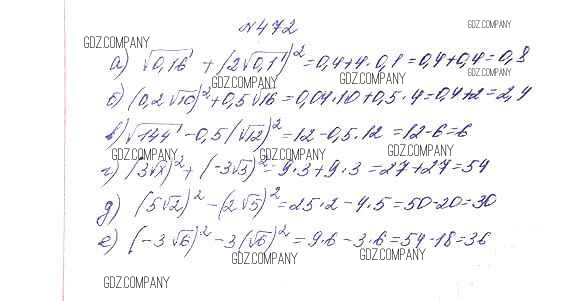 №472
GDZ.COMPANY
GDZ.COMPANY
а) √0,16 + (2√0,1)² = 0,4+4·0,1 = 0,4+0,4 = 0,8
GDZ.COMPANY
GDZ.COMPANY
GDZ.COMPANY
б) (0,2√10)² + 0,5√16 = 0,04·10+0,5·4 = 0,4+2 = 2,4
в) √144 - 0,5(√12)² = 12 - 0,5·12 = 12-6 = 6
GDZ.COMPANY
GDZ.COMPANY
GDZ.COMPANY
г) (3√3)² + (-3√3)² = 9·3+9·3 = 27+27 = 54
д) (5√2)² - (2√5)² = 25·2 - 4·5 = 50-20 = 30
е) (-3√6)² - 3(√6)² = 9·6 - 3·6 = 54-18 = 36
GDZ.COMPANY
GDZ.COMPANY
GDZ.COMPANY